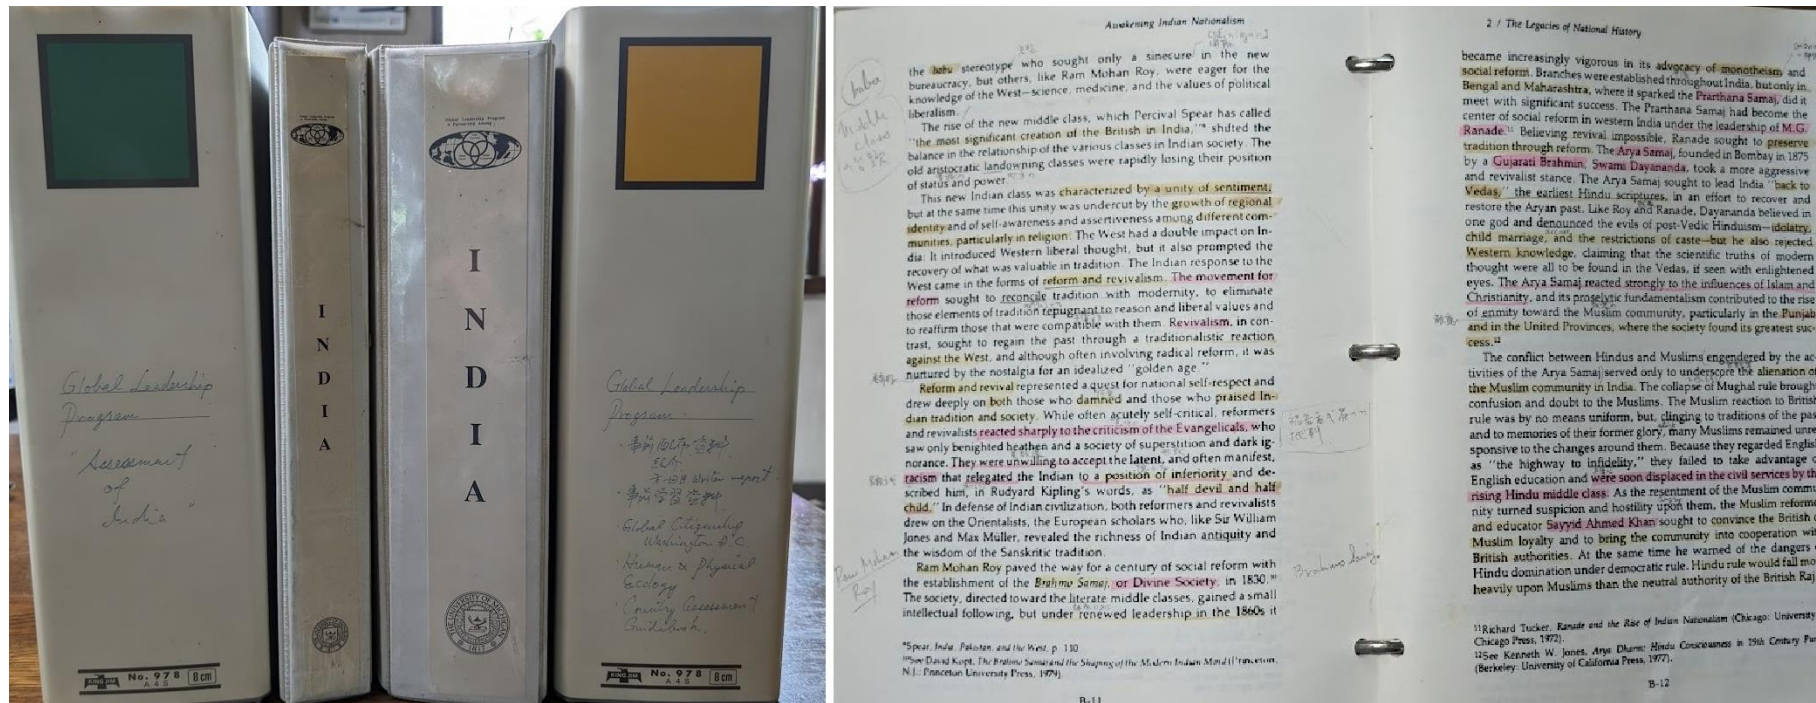 Global Leadership
Program
"Assessment
of
India"
KING JIM
No. 978
A4S
8cm
Global Leadership Program
INDIA
Global Leadership Program
INDIA
THE UNIVERSITY OF MICHIGAN
1817
Global Leadership
Program
Global Citizenship
Washington D.C.
Human & Physical
Ecology
Country Assessment
Guidebook.
KING JIM
No. 978
A4S
8cm
Awakening Indian Nationalism
the babu stereotype who sought only a sinecure in the new
bureaucracy, but others, like Ram Mohan Roy, were eager for the
knowledge of the West—science, medicine, and the values of political
liberalism.
The rise of the new middle class, which Percival Spear has called
"the most significant creation of the British in India," shifted the
balance in the relationship of the various classes in Indian society. The
old aristocratic landowning classes were rapidly losing their position
of status and power.
This new Indian class was characterized by a unity of sentiment,
but at the same time this unity was undercut by the growth of regional
identity and of self-awareness and assertiveness among different com-
munities, particularly in religion. The West had a double impact on In-
dia: It introduced Western liberal thought, but it also prompted the
recovery of what was valuable in tradition. The Indian response to the
West came in the forms of reform and revivalism. The movement for
reform sought to reconcile tradition with modernity, to eliminate
those elements of tradition repugnant to reason and liberal values and
to reaffirm those that were compatible with them. Revivalism, in con-
trast, sought to regain the past through a traditionalistic reaction
against the West, and although often involving radical reform, it was
nurtured by the nostalgia for an idealized "golden age."
Reform and revival represented a quest for national self-respect and
drew deeply on both those who damned and those who praised In-
dian tradition and society. While often acutely self-critical, reformers
and revivalists reacted sharply to the criticism of the Evangelicals, who
saw only benighted heathen and a society of superstition and dark ig-
norance. They were unwilling to accept the latent, and often manifest,
racism that relegated the Indian to a position of inferiority and de-
scribed him, in Rudyard Kipling's words, as "half devil and half
child." In defense of Indian civilization, both reformers and revivalists
drew on the Orientalists, the European scholars who, like Sir William
Jones and Max Müller, revealed the richness of Indian antiquity and
the wisdom of the Sanskritic tradition.
Ram Mohan Roy paved the way for a century of social reform with
the establishment of the Brahmo Samaj, or Divine Society, in 1830.¹⁰
The society, directed toward the literate middle classes, gained a small
intellectual following, but under renewed leadership in the 1860s it
⁹Spear, India, Pakistan, and the West, p. 110
¹⁰See David Kopf, The Brahmo Samaj and the Shaping of the Modern Indian Mind (Princeton,
N.J.: Princeton University Press, 1979).
B-11
babu
middle
class
Ram Mohan
Roy
Brahmo Samaj
2 / The Legacies of National History
became increasingly vigorous in its advocacy of monotheism and
social reform. Branches were established throughout India, but only in
Bengal and Maharashtra, where it sparked the Prarthana Samaj, did it
meet with significant success. The Prarthana Samaj had become the
center of social reform in western India under the leadership of M.G.
Ranade.¹¹ Believing revival impossible, Ranade sought to preserve
tradition through reform. The Arya Samaj, founded in Bombay in 1875
by a Gujarati Brahmin, Swami Dayananda, took a more aggressive
and revivalist stance. The Arya Samaj sought to lead India "back to
Vedas," the earliest Hindu scriptures, in an effort to recover and
restore the Aryan past. Like Roy and Ranade, Dayananda believed in
one god and denounced the evils of post-Vedic Hinduism—idolatry,
child marriage, and the restrictions of caste—but he also rejected
Western knowledge, claiming that the scientific truths of modern
thought were all to be found in the Vedas, if seen with enlightened
eyes. The Arya Samaj reacted strongly to the influences of Islam and
Christianity, and its proselytic fundamentalism contributed to the rise
of enmity toward the Muslim community, particularly in the Punjab
and in the United Provinces, where the society found its greatest suc-
cess.¹²
The conflict between Hindus and Muslims engendered by the ac-
tivities of the Arya Samaj served only to underscore the alienation of
the Muslim community in India. The collapse of Mughal rule brought
confusion and doubt to the Muslims. The Muslim reaction to British
rule was by no means uniform, but, clinging to traditions of the past
and to memories of their former glory, many Muslims remained unre-
sponsive to the changes around them. Because they regarded English
as "the highway to infidelity," they failed to take advantage of
English education and were soon displaced in the civil services by the
rising Hindu middle class. As the resentment of the Muslim commu-
nity turned suspicion and hostility upon them, the Muslim reformer
and educator Sayyid Ahmed Khan sought to convince the British of
Muslim loyalty and to bring the community into cooperation with
British authorities. At the same time he warned of the dangers of
Hindu domination under democratic rule. Hindu rule would fall more
heavily upon Muslims than the neutral authority of the British Raj
¹¹Richard Tucker, Ranade and the Rise of Indian Nationalism (Chicago: University
Chicago Press, 1972).
¹²See Kenneth W. Jones, Arya Dharm: Hindu Consciousness in 19th Century
(Berkeley: University of California Press, 1977).
B-12